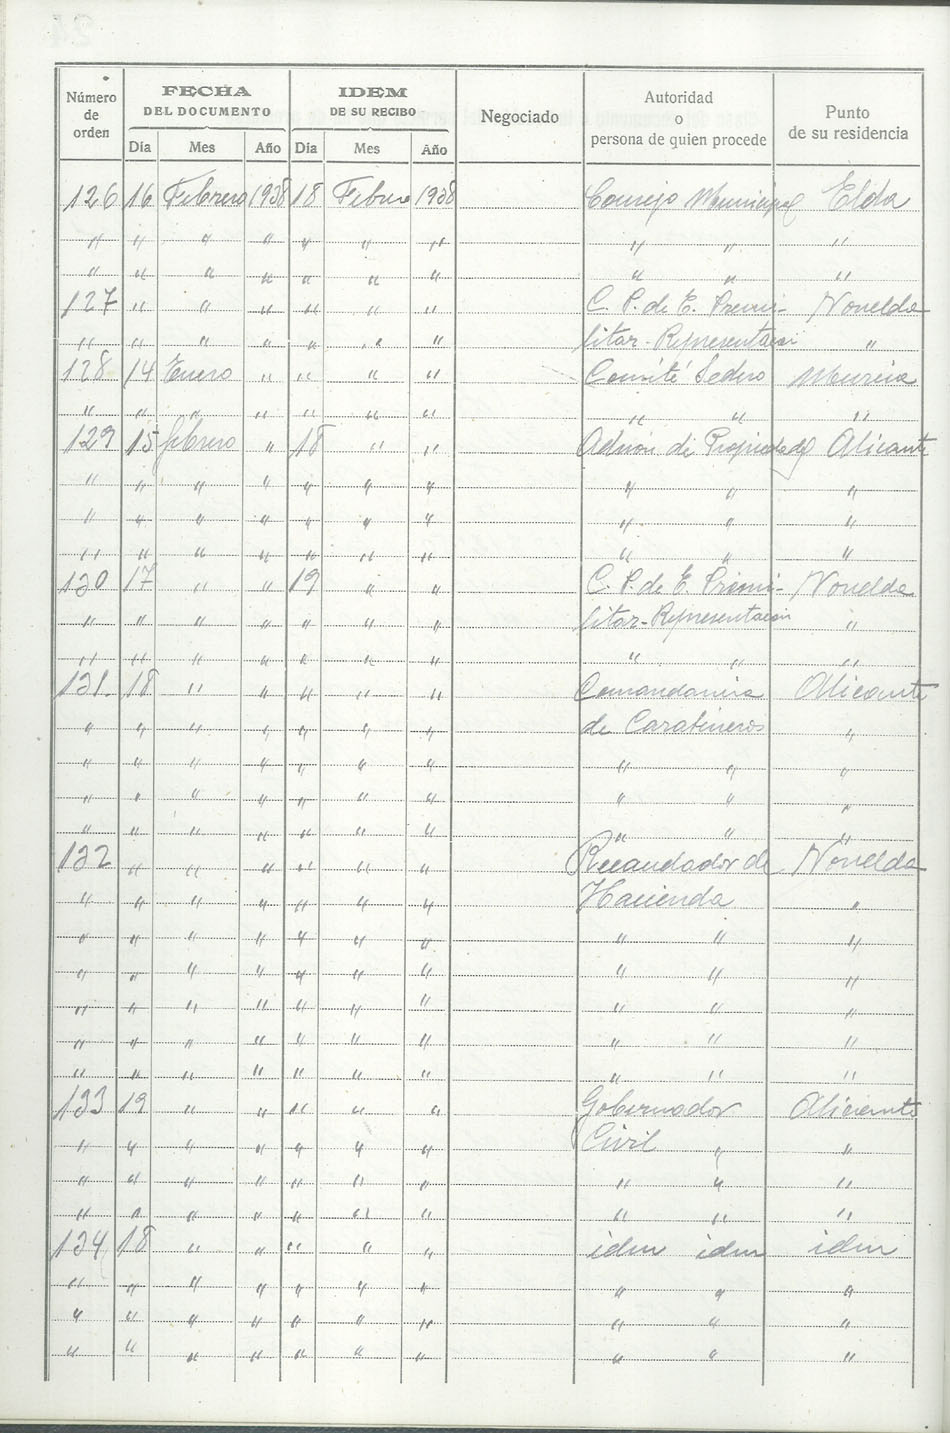 Número de orden | FECHA DEL DOCUMENTO | IDEM DE SU RECIBO | Negociado | Autoridad o persona de quien procede | Punto de su residencia
Día | Mes | Año | Día | Mes | Año
126 16 Febrero 1938 18 Febrero 1938 Consejo Municipal Elda
" " " " " " " " " "
" " " " " " " " " "
127 " " " " " " C. P. de E. Premi- Novelda
" " " " " " " litar - Representación "
128 14 Enero " " " " Comité Sedero Murcia
" " " " " " " " " "
129 15 febrero " 18 " " Admón de Propiedades Alicante
" " " " " " " " " "
" " " " " " " " " "
" " " " " " " " " "
130 17 " " 19 " " C. P. de E. Premi- Novelda
" " " " " " " litar - Representación "
" " " " " " " " " "
131. 18 " " " " " Comandancia Alicante
" " " " " " " de Carabineros "
" " " " " " " " " "
" " " " " " " " " "
" " " " " " " " " "
132 " " " " " " Recaudador de Novelda
" " " " " " " Hacienda "
" " " " " " " " " "
" " " " " " " " " "
" " " " " " " " " "
" " " " " " " " " "
" " " " " " " " " "
133 19 " " " " " Gobernador Alicante
" " " " " " " Civil " "
" " " " " " " " " "
" " " " " " " " " "
134 18 " " " " " idm idm idm
" " " " " " " " " "
" " " " " " " " " "
" " " " " " " " " "